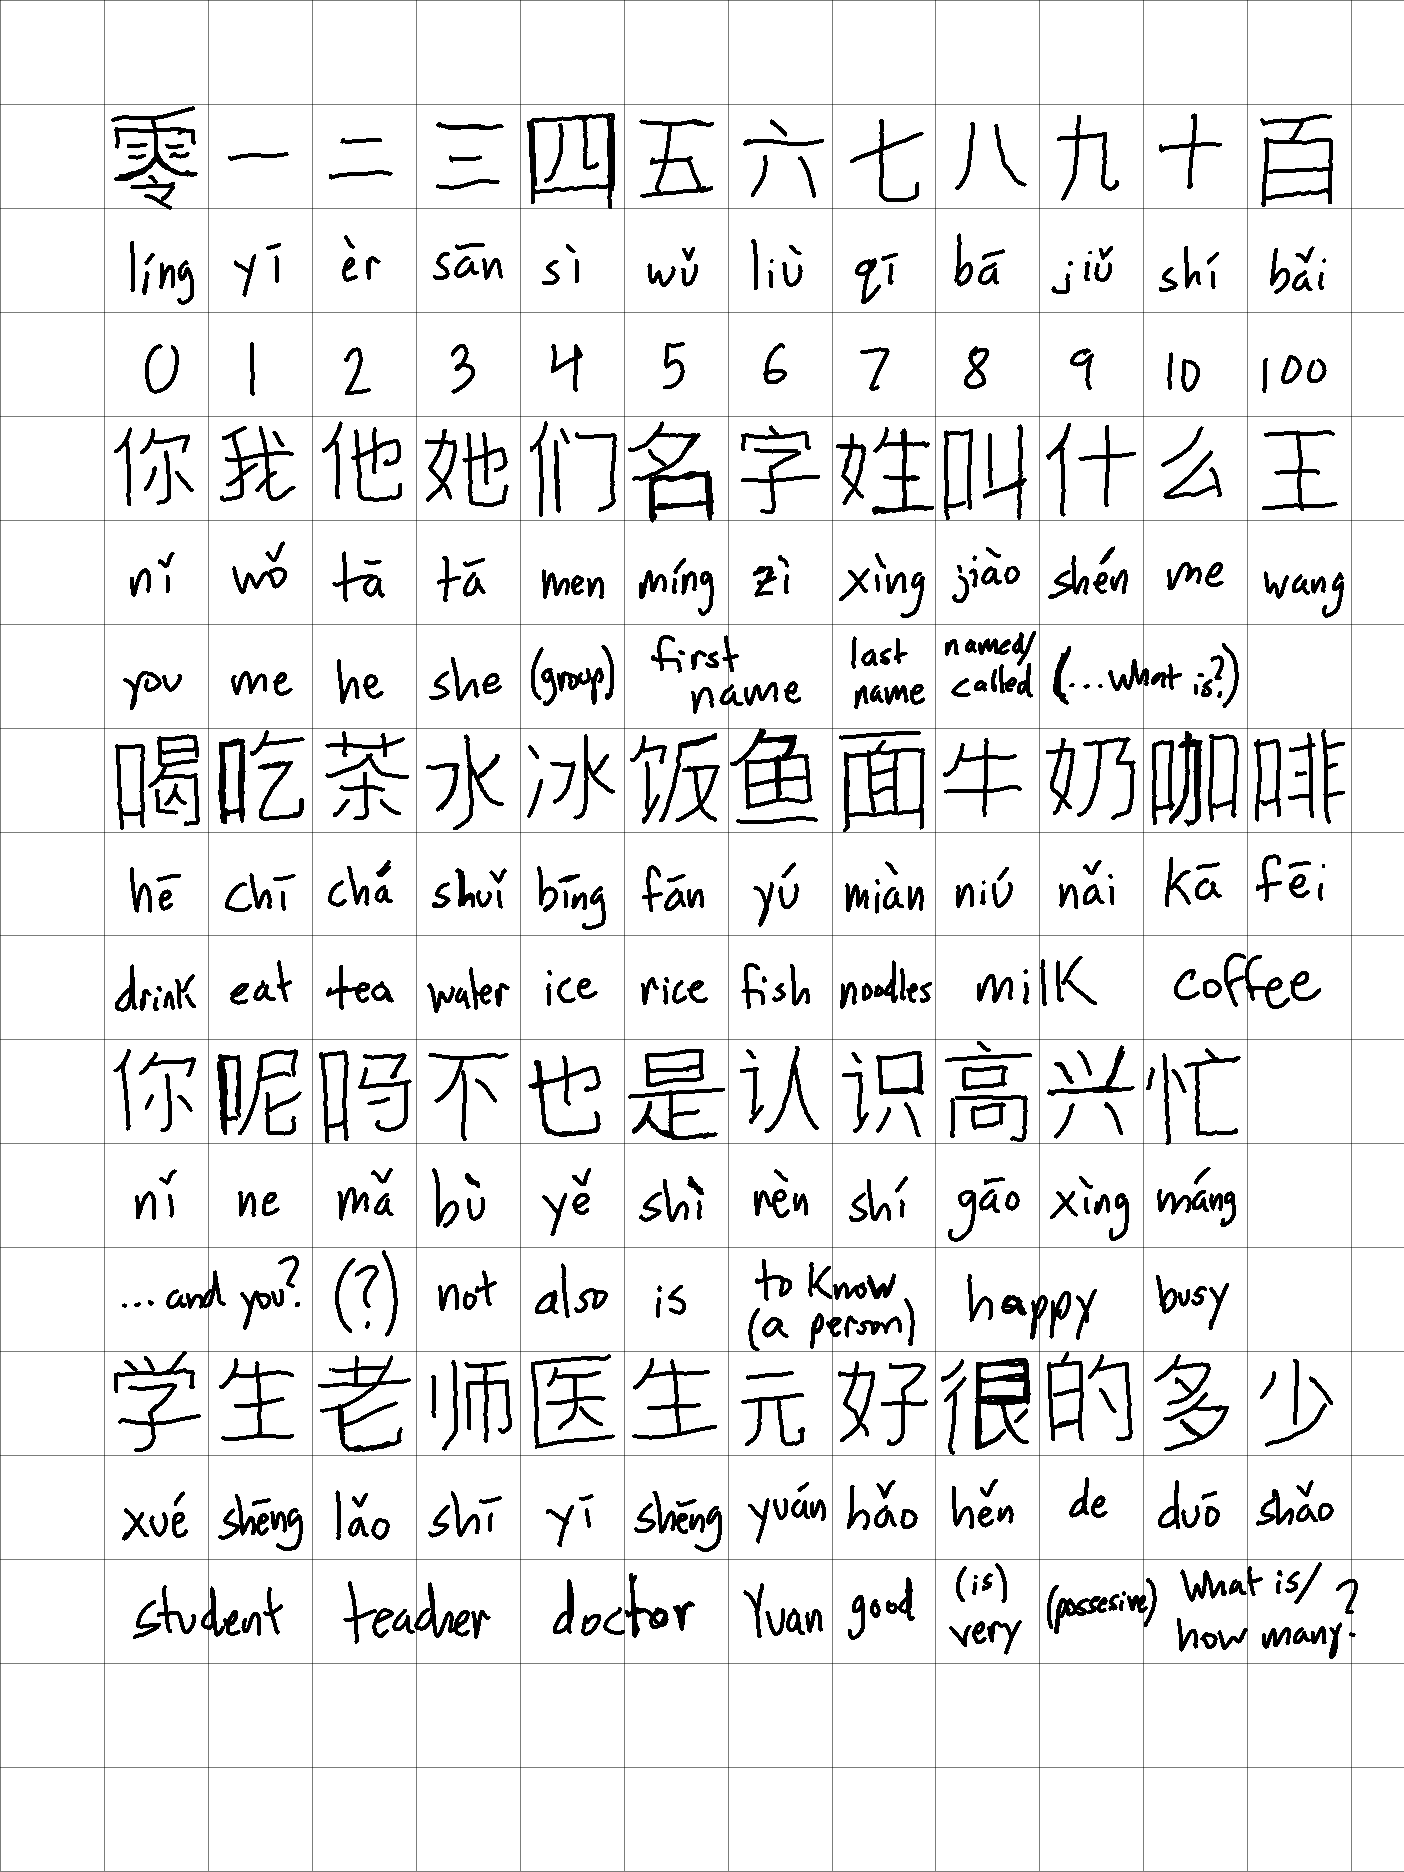 零 一 二 三 四 五 六 七 八 九 十 百
líng yī èr sān sì wǔ liù qī bā jiǔ shí bǎi
0 1 2 3 4 5 6 7 8 9 10 100
你 我 他 她 们 名 字 姓 叫 什 么 王
nǐ wǒ tā tā men míng zì xìng jiào shén me wang
you me he she (group) first name last name named/called (...what is?)
喝 吃 茶 水 冰 饭 鱼 面 牛 奶 咖 啡
hē chī chá shuǐ bīng fān yú miàn niú nǎi kā fēi
drink eat tea water ice rice fish noodles milk coffee
你 呢 吗 不 也 是 认 识 高 兴 忙
nǐ ne mǎ bù yě shì rèn shí gāo xìng máng
...and you? (?) not also is to know (a person) happy busy
学 生 老 师 医 生 元 好 很 的 多 少
xué shēng lǎo shī yī shēng yuán hǎo hěn de duō shǎo
student teacher doctor Yuan good (is) very (possesive) What is/how many?